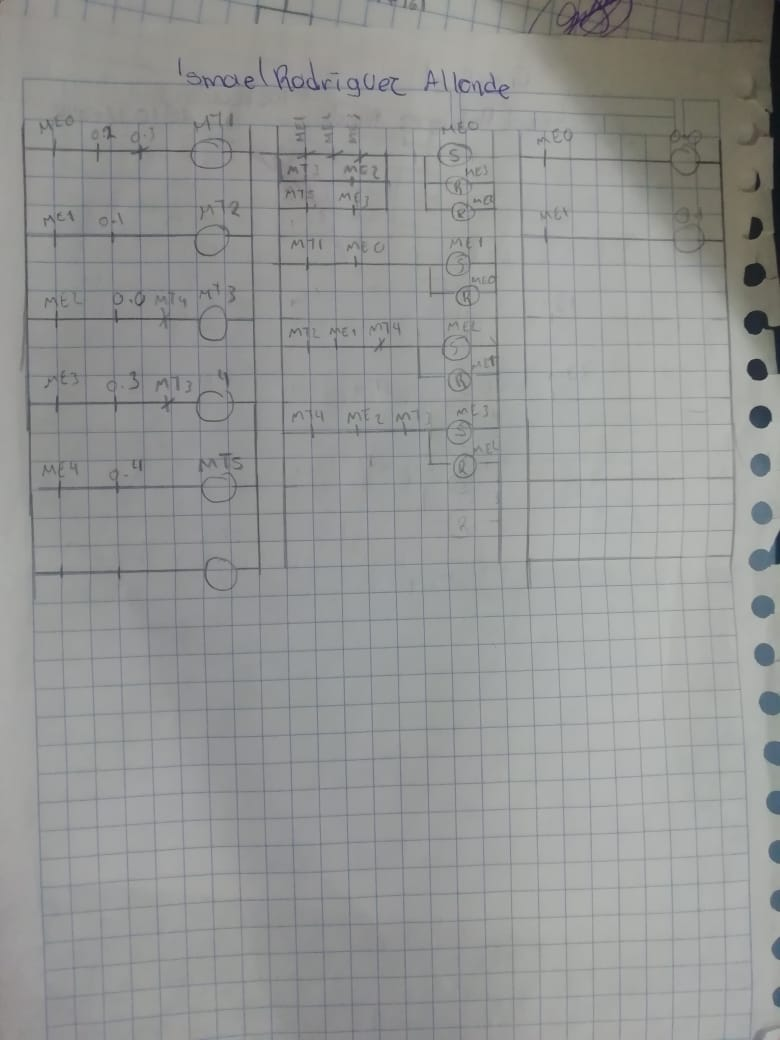 Ismael Rodriguez Allonde
ME0 0.2 0.3 MT1
ME1 0.1 MT2
ME2 0.0 MT4 MT3
ME3 0.3 MT3 4
ME4 0.4 MT5
ME0
S
MT3 ME2 ME3
R
MT5 ME3
R
MT1 ME0 ME1
S
ME0
R
MT2 ME1 MT4 ME2
S
ME1
R
MT4 ME2 MT3 ME3
S
ME2
R
ME0
ME1